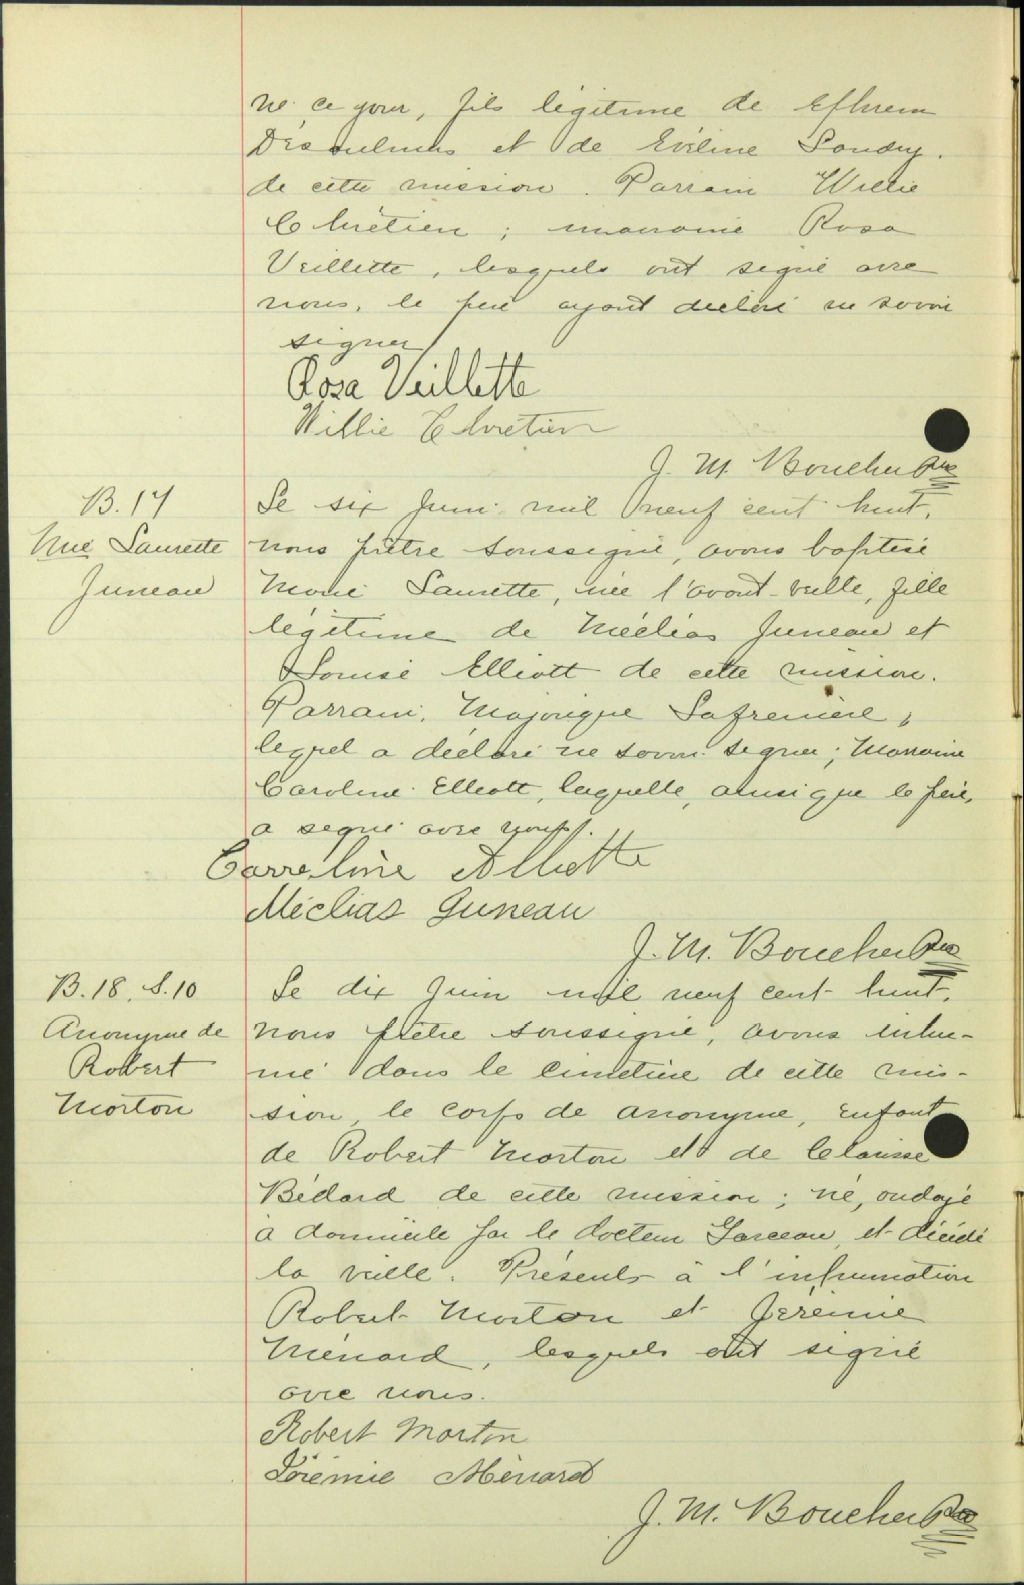 né ce jour, fils légitime de Ephrem
Desaulniers et de Eveline Landry.
de cette mission. Parrain Willie
Chrétien ; marraine Rosa
Veillette, lesquels ont signé avec
nous, le père ayant déclaré ne savoir
signer
Rosa Veillette
Willie Chretien
J. M. Boucher Ptre
B. 17
Mie Laurette
Juneau
Le six Juin mil neuf cent huit,
nous prêtre soussigné, avons baptisé
Marie Laurette, née l'avant-veille, fille
légitime de Méclias Juneau et
Louise Elliott de cette mission.
Parrain, Majorique Lafrenière,
lequel a déclaré ne savoir signer ; Marraine
Caroline Elliott, laquelle, ainsi que le père,
a signé avec nous.
Carroline Alliotte
Méclias Juneau
J. M. Boucher Ptre
B. 18. S. 10
Anonyme de
Robert
Morton
Le dix Juin mil neuf cent huit,
nous prêtre soussigné, avons inhu-
mé dans le cimetière de cette mis-
sion, le corps de anonyme, enfant
de Robert Morton et de Clarisse
Bédard de cette mission ; né, ondoyé
à domicile par le docteur Garceau, et décédé
la veille. Présents à l'inhumation
Robert Morton et Jérémie
Ménard, lesquels ont signé
avec nous.
Robert Morton
Jérémie Ménard
J. M. Boucher Ptre